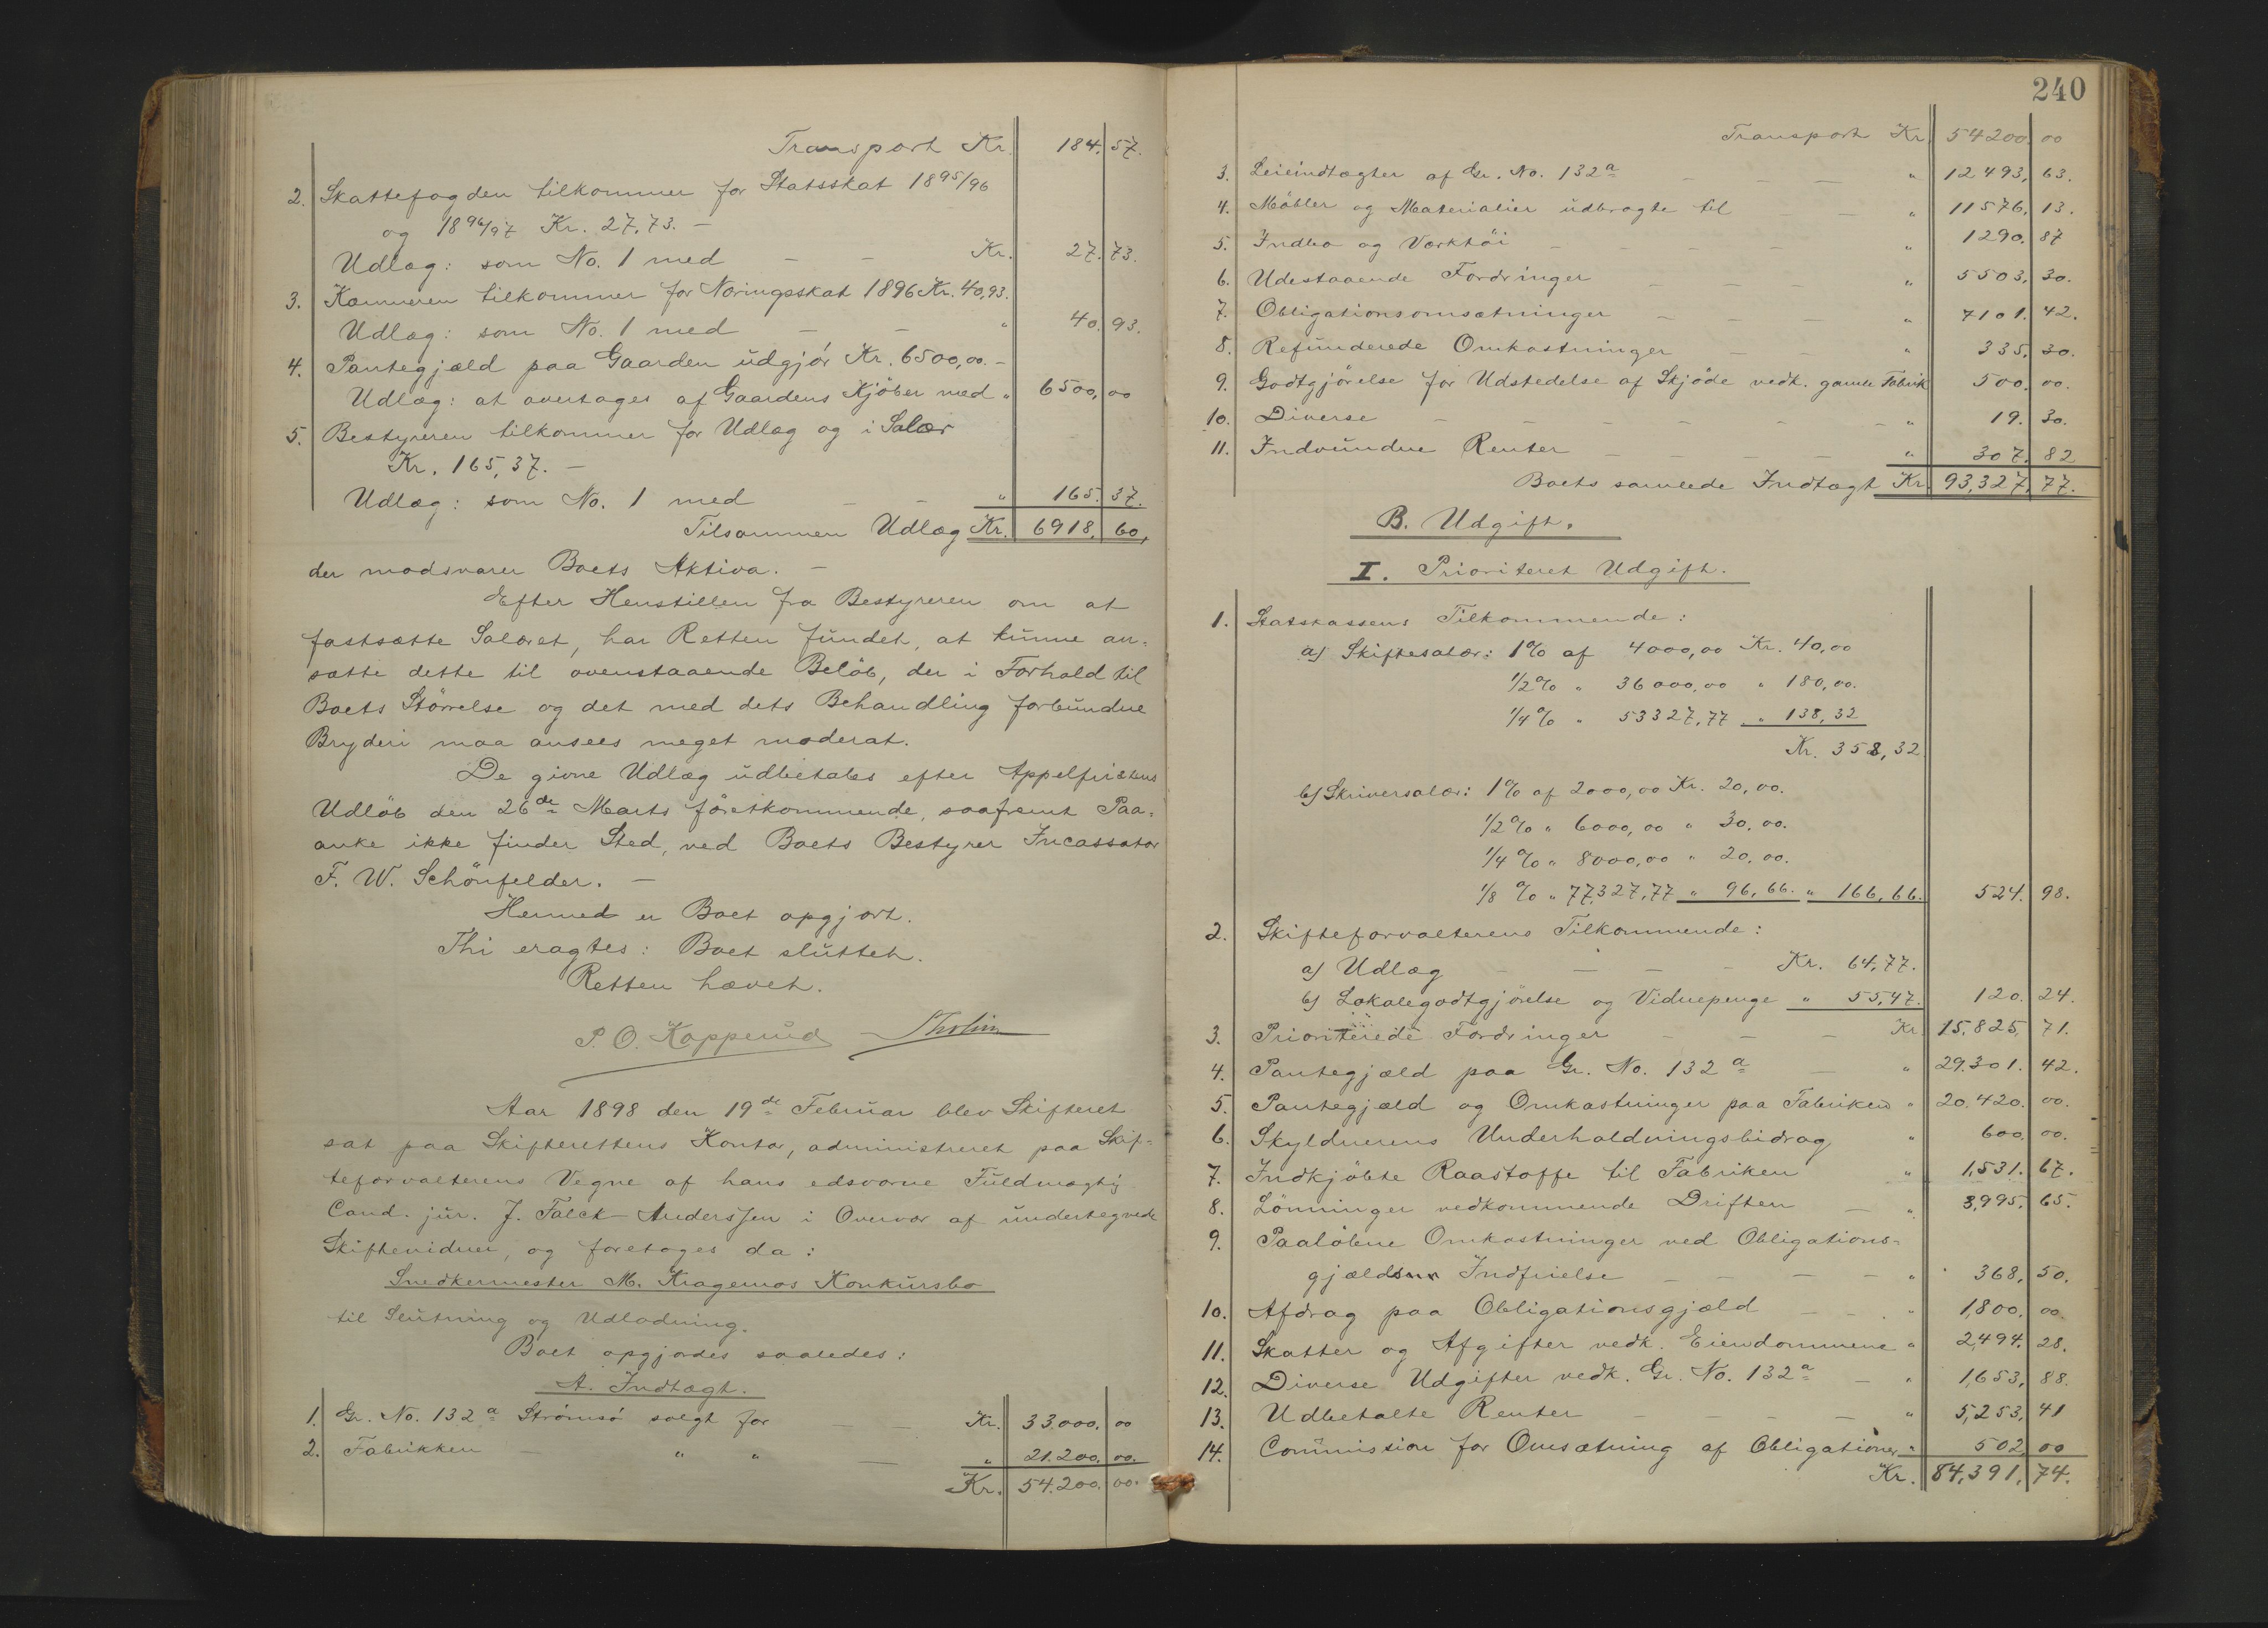 Transport Kr. 184. 57.
2. Skattefogden tilkommer for Statsskat 1895/96
og 1896/97 Kr. 27.73. –
Udlæg: som No. 1 med – – Kr. 27. 73.
3. Kæmneren tilkommer for Næringsskat 1896 Kr. 40,93.
Udlæg: som No. 1 med – – " 40. 93.
4. Pantegjæld paa Gaarden udgjör Kr. 6500,00. –
Udlæg: at overtages af Gaardens Kjöber med " 6500, 00
5. Bestyreren tilkommer for Udlæg og i Salær
Kr. 165,37. –
Udlæg: som No. 1 med – – " 165. 37.
Tilsammen Udlæg Kr. 6918, 60,
der modsvarer Boets Aktiva. –
Efter Henstillen fra Bestyreren om at
fastsætte Salæret, har Retten fundet, at kunne an-
sætte dette til ovenstaaende Belöb, der i Forhold til
Boets Störrelse og det med dets Behandling forbundne
Bryderi maa ansees meget moderat.
De givne Udlæg udbetales efter Appelfristens
Udlöb den 26de Marts förstkommende, saafremt Paa-
anke ikke finder Sted, ved Boets Bestyrer Incassator
F. W. Schönfelder. –
Hermed er Boet opgjort.
Thi eragtes: Boet sluttet.
Retten hævet.
P. O. Kopperud
Aar 1898 den 19de Februar blev Skifteret
sat paa Skifterettens Kontor, administreret paa Skif-
teforvalterens Vegne af hans edsvorne Fuldmægtig
Cand. jur. J. Falck-Anderssen i Overvær af undertegnede
Skiftevidner, og foretoges da:
Snedkermester M. Kragemos Konkursbo
til Slutning og Udlodning.
Boet opgjordes saaledes:
A. Indtægt.
1. Gr. No. 132a Strömsö solgt for – Kr. 33.000. 00
2. Fabrikken – " " – " 21.200. 00.
Kr. 54.200. 00.
240
Transport Kr. 54200. 00
3. Leieindtægter af Gr. No. 132a – – – " 12493, 63.
4. Möbler og Materialier udbragte til – – " 11576, 13.
5. Indbo og Værktöi – – – – " 1290. 87
6. Udestaaende Fordringer – – – " 5503, 30.
7. Obligationsomsætninger – – – " 7101. 42.
8. Refunderede Omkostninger – – " 335. 30.
9. Godtgjörelse for Udstedelse af Skjöde vedk. gamle Fabrik 500. 00.
10. Diverse – – – – – – " 19. 30.
11. Indvundne Renter – – – – " 307. 82
Boets samlede Indtægt Kr. 93,327. 77.
B. Udgift.
I. Prioriteret Udgift.
1. Statskassens Tilkommende:
a) Skiftesalær: 1% af 4000,00 Kr. 40,00
1/2% " 36000,00 " 180,00.
1/4% " 53327,77 " 138,32
Kr. 358,32
b) Skriversalær: 1% af 2000,00 Kr. 20,00.
1/2% " 6000,00 " 30,00.
1/4% " 8000,00 " 20,00.
1/8 % " 77,327,77 " 96,66. " 166,66. 524. 98.
2. Skifteforvalterens Tilkommende:
a) Udlæg – – – – Kr. 64,77.
b) Lokalegodtgjörelse og Vidnepenge " 55,47. 120. 24.
3. Prioriterede Fordringer – – – Kr. 15,825, 71.
4. Pantegjæld paa Gr. No. 132a – " 29.301. 42.
5. Pantegjæld og Omkostninger paa Fabriken " 20.420. 00.
6. Skyldnerens Underholdningsbidrag " 600. 00.
7. Indkjöbte Raastoffe til Fabriken " 1,531. 67.
8. Lönninger vedkommende Driften – " 3,995, 65.
9. Paaløbne Omkostninger ved Obligations-
gjældens Indfrielse – – – – " 368, 50.
10. Afdrag paa Obligationsgjæld – – " 1,800. 00.
11. Skatter og Afgifter vedk. Eiendommene " 2,494. 28.
12. Diverse Udgifter vedk. Gr. No. 132a – " 1,653, 88.
13. Udbetalte Renter – – – – " 5,253, 41
14. Commission for Omsætning af Obligationer " 502, 00
Kr. 84,391, 74.